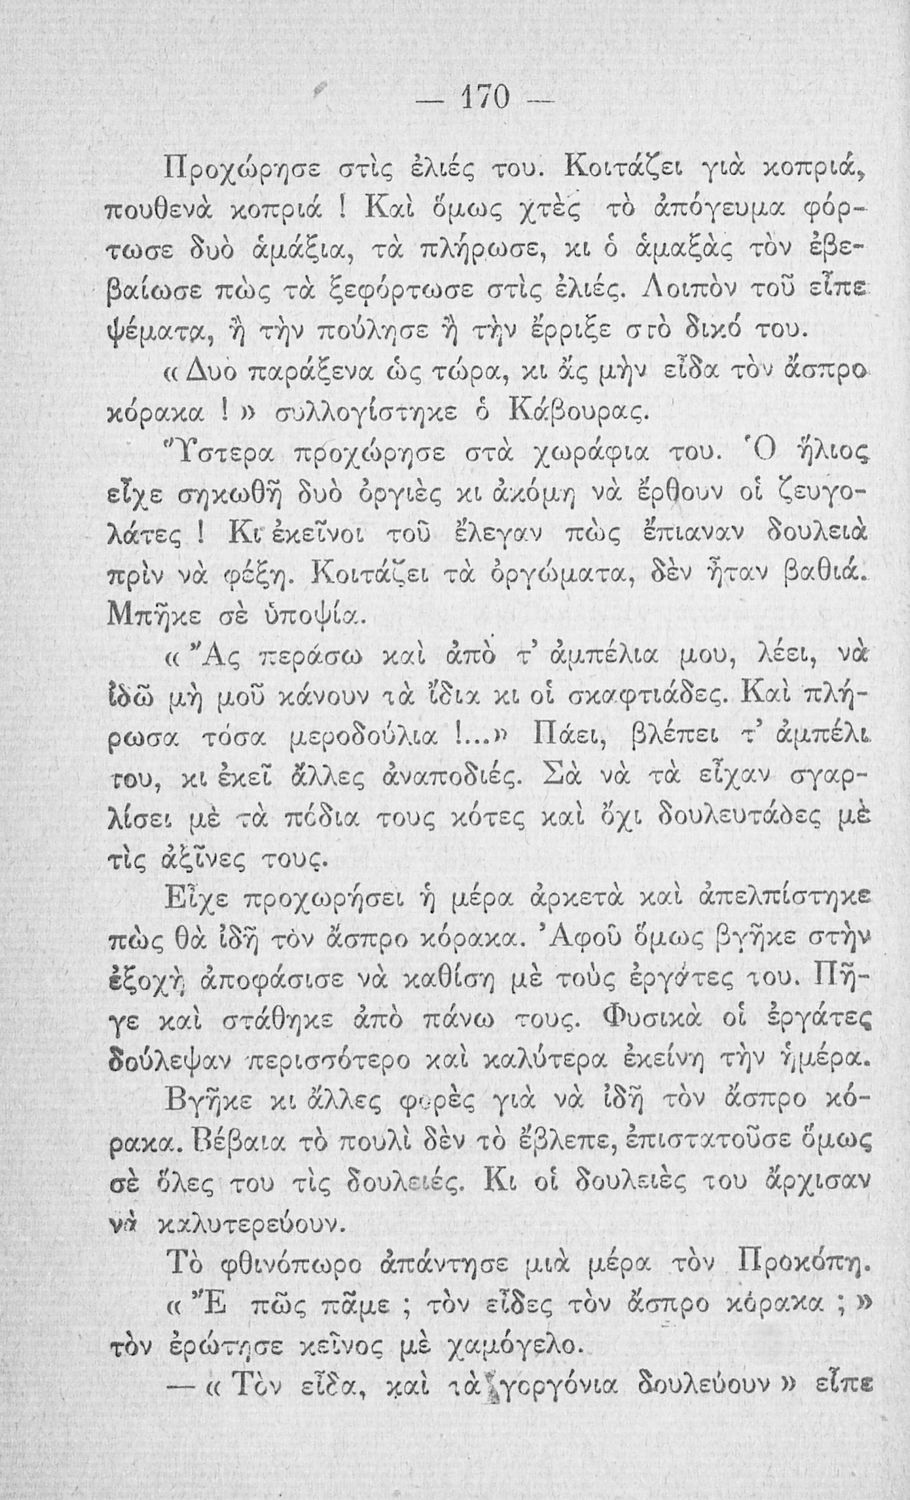 — 170 —
Προχώρησε στὶς ἐλιές του. Κοιτάζει γιὰ κοπριά,
πουθενὰ κοπριά ! Καὶ ὅμως χτὲς τὸ ἀπόγευμα φόρ-
τωσε δυὸ ἁμάξια, τὰ πλήρωσε, κι ὁ ἁμαξὰς τὸν ἐβε-
βαίωσε πὼς τὰ ξεφόρτωσε στὶς ἐλιές. Λοιπὸν τοῦ εἶπε
ψέματα, ἢ τὴν πούλησε ἢ τὴν ἔρριξε στὸ δικό του.
« Δυὸ παράξενα ὡς τώρα, κι ἂς μὴν εἶδα τὸν ἄσπρο
κόρακα ! » συλλογίστηκε ὁ Κάβουρας.
Ὕστερα προχώρησε στὰ χωράφια του. Ὁ ἥλιος
εἶχε σηκωθῆ δυὸ ὀργιὲς κι ἀκόμη νὰ ἔρθουν οἱ ζευγο-
λάτες ! Κι ἐκεῖνοι τοῦ ἔλεγαν πὼς ἔπιαναν δουλειὰ
πρὶν νὰ φέξη. Κοιτάζει τὰ ὀργώματα, δὲν ἦταν βαθιά.
Μπῆκε σὲ ὑποψία.
« Ἂς περάσω καὶ ἀπὸ τ' ἀμπέλια μου, λέει, νὰ
ἰδῶ μὴ μοῦ κάνουν τὰ ἴδια κι οἱ σκαφτιάδες. Καὶ πλή-
ρωσα τόσα μεροδούλια !...» Πάει, βλέπει τ' ἀμπέλι
του, κι ἐκεῖ ἄλλες ἀναποδιές. Σὰ νὰ τὰ εἶχαν σγαρ-
λίσει μὲ τὰ πόδια τους κότες καὶ ὄχι δουλευτάδες μὲ
τὶς ἀξῖνες τους.
Εἶχε προχωρήσει ἡ μέρα ἀρκετὰ καὶ ἀπελπίστηκε
πὼς θὰ ἰδῆ τὸν ἄσπρο κόρακα. Ἀφοῦ ὅμως βγῆκε στὴν
ἐξοχὴ ἀποφάσισε νὰ καθίση μὲ τοὺς ἐργάτες του. Πῆ-
γε καὶ στάθηκε ἀπὸ πάνω τους. Φυσικὰ οἱ ἐργάτες
δούλεψαν περισσότερο καὶ καλύτερα ἐκείνη τὴν ἡμέρα.
Βγῆκε κι ἄλλες φορὲς γιὰ νὰ ἰδῆ τὸν ἄσπρο κό-
ρακα. Βέβαια τὸ πουλὶ δὲν τὸ ἔβλεπε, ἐπιστατοῦσε ὅμως
σὲ ὅλες του τὶς δουλειές. Κι οἱ δουλειὲς του ἄρχισαν
νὰ καλυτερεύουν.
Τὸ φθινόπωρο ἀπάντησε μιὰ μέρα τὸν Προκόπη.
« Ἒ πῶς πᾶμε ; τὸν εἶδες τὸν ἄσπρο κόρακα ; »
τὸν ἐρώτησε κεῖνος μὲ χαμόγελο.
— « Τὸν εἶδα, καὶ τὰ γοργόνια δουλεύουν » εἶπε